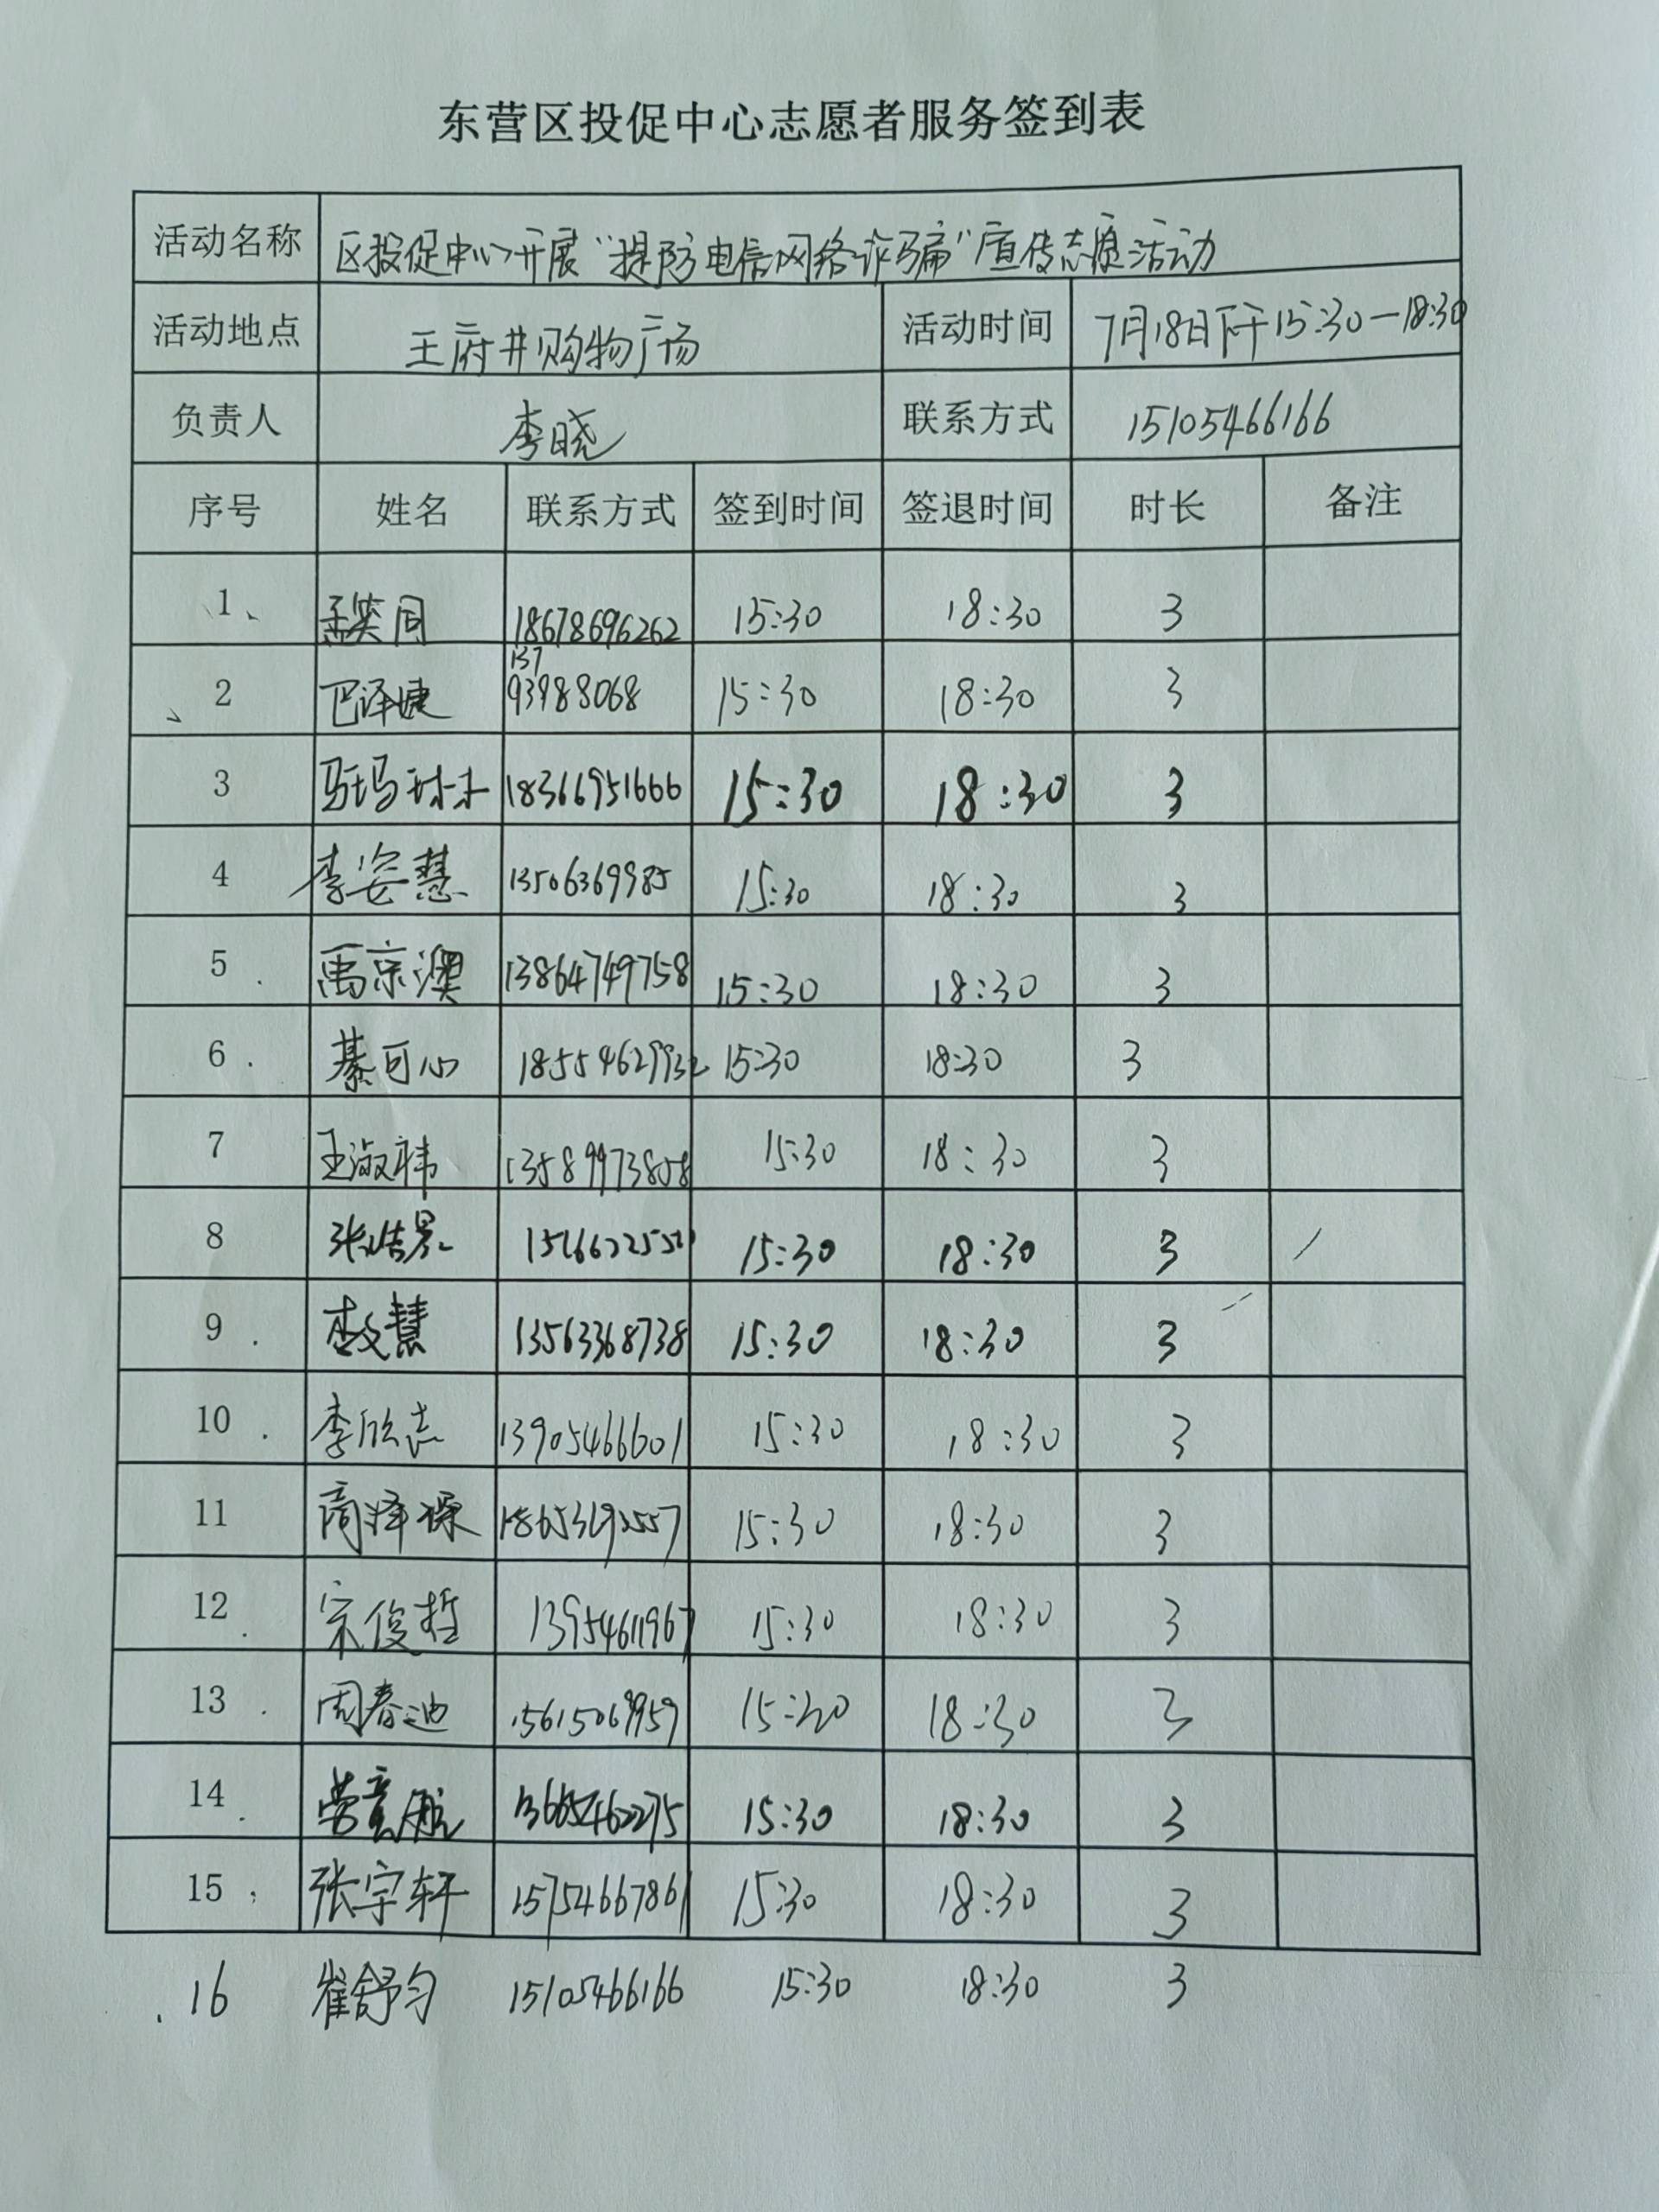 东营区投促中心志愿者服务签到表
活动名称 区投促中心开展“提防电信网络诈骗”宣传志愿活动
活动地点 王府井购物广场 活动时间 7月18日下午15:30—18:30
负责人 李晓 联系方式 15105466166
序号 姓名 联系方式 签到时间 签退时间 时长 备注
1 孟奕同 18678696262 15:30 18:30 3
2 巴泽婕 137 93988068 15:30 18:30 3
3 18366951666 15:30 18:30 3
4 李姿慧 13506369985 15:30 18:30 3
5 禹京澳 13864749758 15:30 18:30 3
6 綦可心 18554629932 15:30 18:30 3
7 王淑祎 13589973858 15:30 18:30 3
8 15:30 18:30 3
9 李文慧 13563368738 15:30 18:30 3
10 李欣志 13905466601 15:30 18:30 3
11 商泽琛 15:30 18:30 3
12 宗俊哲 13954611967 15:30 18:30 3
13 周春迪 15615069959 15:30 18:30 3
14 13665462275 15:30 18:30 3
15 张宇轩 15754667861 15:30 18:30 3
16 崔舒匀 15105466166 15:30 18:30 3